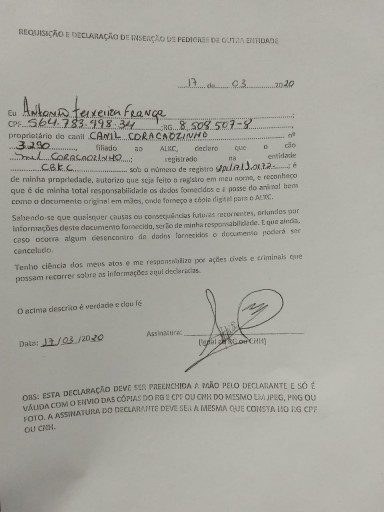 REQUISIÇÃO E DECLARAÇÃO DE INSERÇÃO DE PEDIGREE DE OUTRA ENTIDADE
17 de 03 2020
Eu Antonio Teixeira França
CPF 564.783.498.34 RG 8.508.507-8
proprietário do canil CANIL CORACAOZINHO nº
3.290 filiado ao ALKC, declaro que o cão
CORACAOZINHO registrado na entidade
C.B.K.C sob o número de registro é
de minha propriedade, autorizo que seja feito o registro em meu nome, e reconheço
que é de minha total responsabilidade os dados fornecidos e a posse do animal bem
como o documento original em mãos, onde forneço a cópia digital para o ALKC.
Sabendo-se que quaisquer causas ou consequências futuras recorrentes, oriundos por
informações deste documento fornecido, serão de minha responsabilidade. E que ainda,
caso ocorra algum desencontro de dados fornecidos o documento poderá ser
cancelado.
Tenho ciência dos meus atos e me responsabilizo por ações cíveis e criminais que
possam recorrer sobre as informações aqui declaradas.
O acima descrito é verdade e dou fé
Data: 17/03/2020 Assinatura:
(Igual ao RG ou CNH)
OBS: ESTA DECLARAÇÃO DEVE SER PREENCHIDA A MÃO PELO DECLARANTE E SÓ É
VÁLIDA COM O ENVIO DAS CÓPIAS DO RG E CPF OU CNH DO MESMO EM JPEG, PNG OU
FOTO. A ASSINATURA DO DECLARANTE DEVE SER A MESMA QUE CONSTA NO RG CPF
OU CNH.